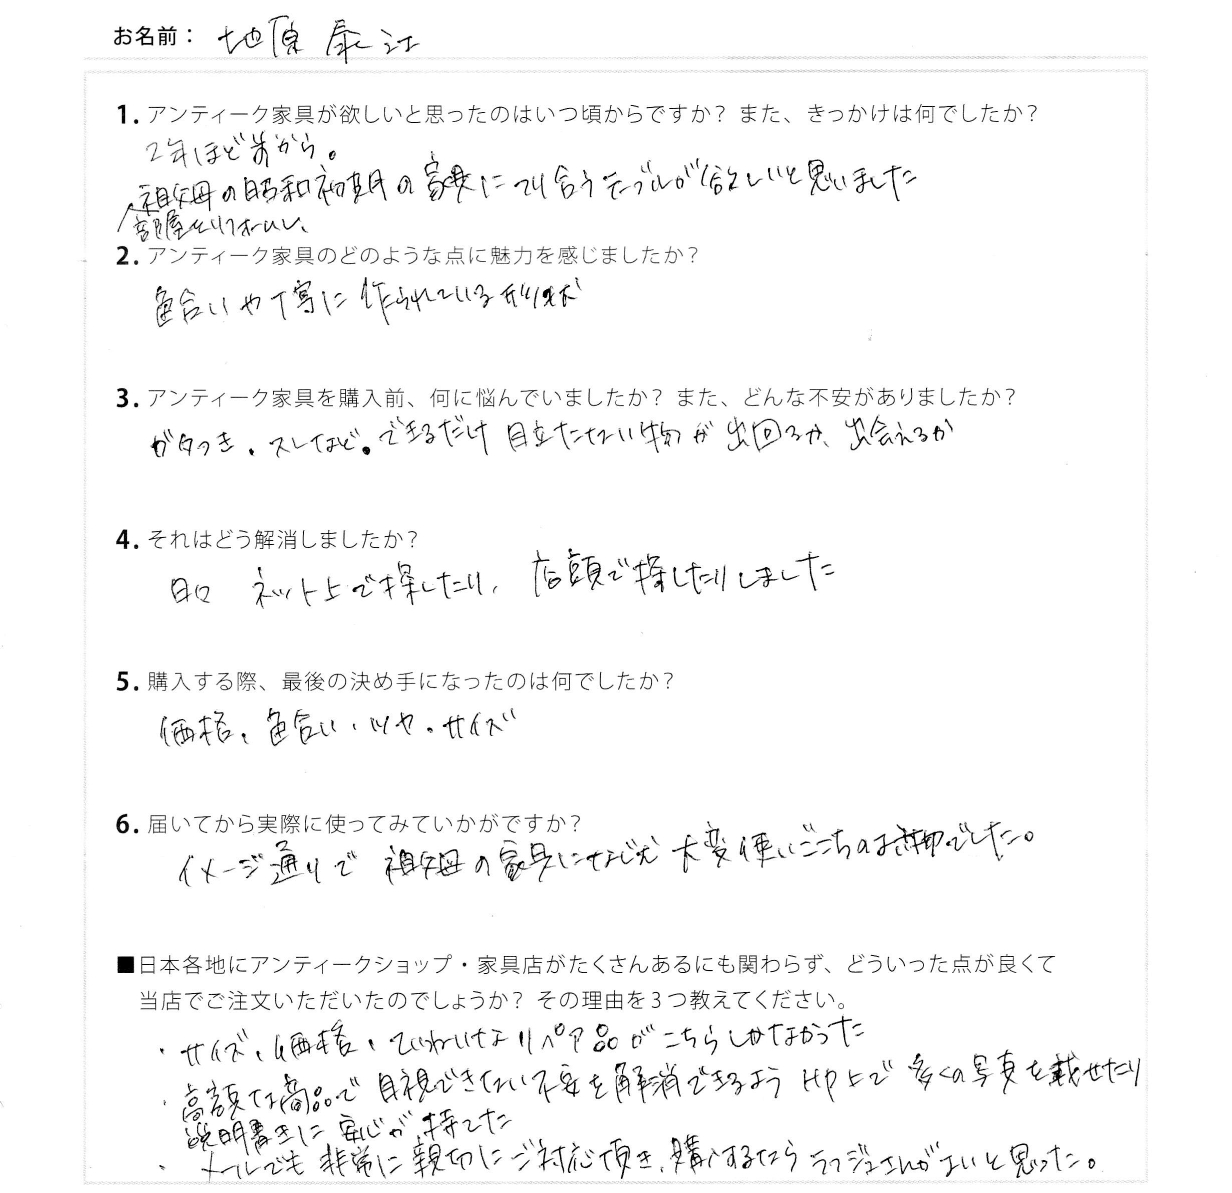 お名前： 地原 泰江
1. アンティーク家具が欲しいと思ったのはいつ頃からですか？ また、きっかけは何でしたか？
2年ほど前から。
祖父母の昭和初期の家具につり合うテーブルが欲しいと思いました
部屋をリフォームし、
2. アンティーク家具のどのような点に魅力を感じましたか？
色合いや丁寧に作られている形状
3. アンティーク家具を購入前、何に悩んでいましたか？ また、どんな不安がありましたか？
ガタつき、スレなど。できるだけ目立たない物が出回るか、出会えるか
4. それはどう解消しましたか？
日々 ネット上で探したり、店頭で探したりしました
5. 購入する際、最後の決め手になったのは何でしたか？
価格、色合い・ツヤ。サイズ
6. 届いてから実際に使ってみていかがですか？
イメージ通りで 祖父母の家具になじむ 大変使いごこちの良い物でした。
■日本各地にアンティークショップ・家具店がたくさんあるにも関わらず、どういった点が良くて
当店でご注文いただいたのでしょうか？ その理由を３つ教えてください。
・サイズ、価格、ていねいなリペア品がこちらしかなかった
・高額な商品で目視できない不安を解消できるようHP上で多くの写真を載せたり
説明書きに安心が持てた
・メールでも非常に親切にご対応頂き、購入するならラフジュさんがよいと思った。